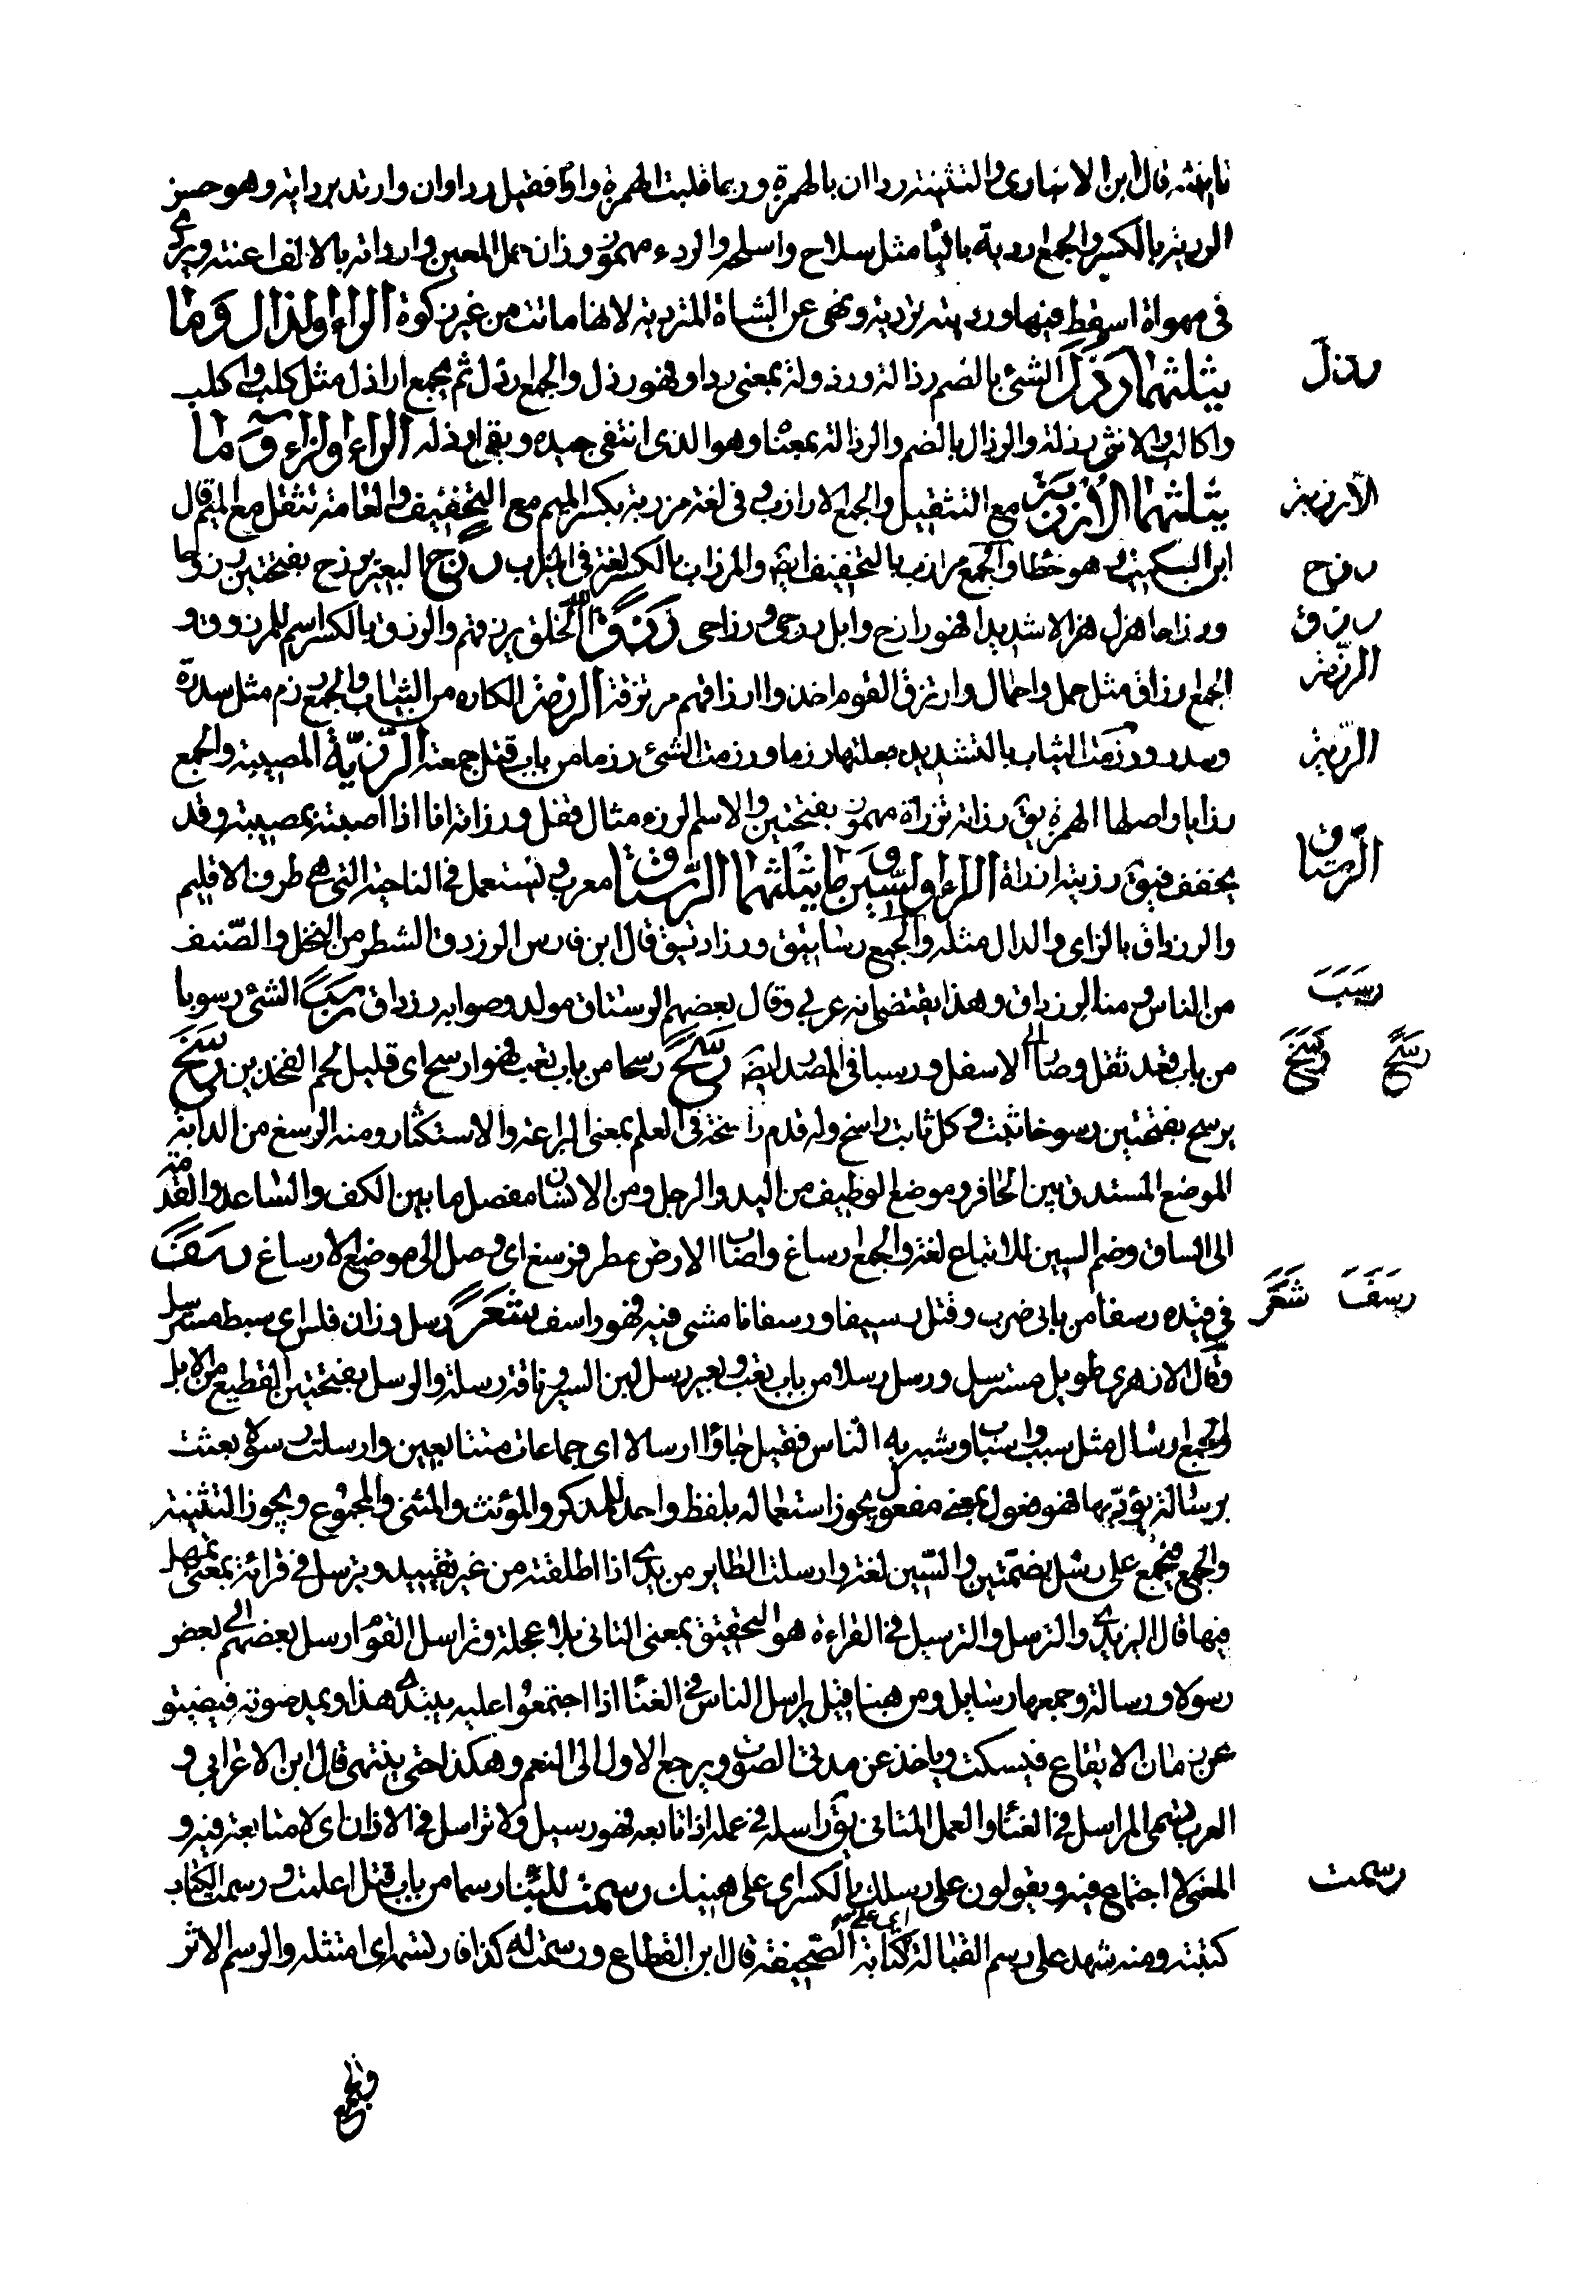 تانيثه قال ابن الانباري والتثنية رداان بالهمزة وربما قلبت الهمزة واوا فقيل رداوان وارتد بردايه وهو حسن
الردية بالكسر والجمع اردية بالياء مثل سلاح واسلحة والردء مهموز وزان حمل المعين واردأته بالالف اعنته وتردى
في مهواة اسقط فيها ورديته تردية ونهى عن الشاة المتردية لانها ماتت من غير زكوة الراء والذال وما
يثلثهما رذل الشئ بالضم رذالة ورذولة بمعنى ردا وفهو رذل والجمع ارذل ثم يجمع اراذل مثل كلب واكلب
واكالب والانثى رذلة والرذال بالضم والرذالة بمعناه وهو الذي انتفى جيده وبقى ارذله الراء والزاء وما
يثلثهما الارزبة مع التثقيل والجمع الارازب وفي لغة مرزبة بكسر الميم مع التخفيف والعامة تثقل مع الميم قال
ابن السكيت وهو خطا والجمع مرازب بالتخفيف ايضا والمرزاب بالكسر لغة في الميزاب رزح البعير يرزح بفتحتين رزوحا
ورزاحا هزل هزالا شديدا فهو رازح وابل رزحى ورزاحى رزق الله الخلق يرزقهم والرزق بالكسر اسم للمرزوق و
الجمع ارزاق مثل حمل واحمال وارتزق القوم اخذوا ارزاقهم مرتزقة الرزمة الكاره من الثياب والجمع رزم مثل سدرة
وسدر ورزمت الثياب بالتشديد جعلتها رزما ورزمت الشئ رزما من باب قتل جمعته الرزية المصيبة والجمع
رزايا واصلها الهمزة يق رزاته ترزاة مهموز بفتحتين والاسم الرزء مثال قفل ورزاته انا اذا اصبته بمصيبة وقد
يخفف فيق رزيته ارزاه الراء والسين وما يثلثهما الرستاق معرب ويستعمل في الناحية التي هي طرف الاقليم
والرزداق بالزاي والدال مثله والجمع رساتيق ورزاديق قال ابن فارس الرزدق الشطر من النخل والصنف
من الناس ومنه الرزداق وهذا يقتضي انه عربي وقال بعضهم الرستاق مولد وصوابه رزداق رسب الشئ رسوبا
من باب قعد ثقل وصار الى الاسفل ورسبا في المصدر ايضا رسح رسحا من باب تعب فهو ارسح اي قليل لحم الفخذين رسخ
يرسخ بفتحتين رسوخا ثبت وكل ثابت راسخ وله قدم راسخة في العلم بمعنى البراعة والاستكثار ومنه الرسغ من الدابة
الموضع المستدق بين الحافر وموضع الوظيف من اليد والرجل ومن الانسان مفصل ما بين الكف والساعد والقدم
الى الساق وضم السين للاتباع لغة والجمع ارساغ واصاب الارض مطر فرسغ اي وصل الى موضع الارساغ رسف
في قيده رسفا من بابي ضرب وقتل رسيفا ورسفانا مشى فيه فهو راسف شعر رسل وزان فلس اي سبط مسترسل
وقال الازهري طويل مسترسل ورسل رسلا من باب تعب وبعير رسل لين السير وناقة رسلة والرسل بفتحتين القطيع من الابل
والجمع ارسال مثل سبب واسباب وشبه به الناس فقيل جاؤا ارسالا اي جماعات متتابعين وارسلت رسولا بعثته
برسالة يؤديها فهو فعول بمعنى مفعول يجوز استعماله بلفظ واحد للمذكر والمؤنث والمثنى والمجموع ويجوز التثنية
والجمع فيجمع على رسل بضمتين والسين لغة وارسلت الطاير من يدي اذا اطلقته من غير تقييد وترسل في قرائة بمعنى تمهل
فيها قال اليزيدي والترسل والترسيل في القراءة هو التحقيق بمعنى التاني بلا عجلة وتراسل القوم ارسل بعضهم الى بعض
رسولا ورسالة وجمعها رسايل ومن هنا قيل يراسل الناس في الغناء اذا اجتمعوا عليه يبتدي هذا ويمد صوته فيضيق
عن زمان الايقاع فيسكت وياخذ عن مدته الصوت ويرجع الاول الى النغم وهكذا حتى ينتهي قال ابن الاعرابي و
العرب تسمى المراسل في الغناء والعمل المتاني يق راسله في عمله اذا تابعه فهو رسيل ولا تراسل في الاذان اي لا متابعة فيه و
المعنى لا اجتماع فيه ويقولون على رسلك بالكسر اي على هينتك رسمت للبناء رسما من باب قتل اعلمت ورسمت الكتاب
كتبته ومنه شهد على رسم القبالة اي على كتابة الصحيفة قال ابن القطاع ورسمت له كذا فارتسمه اي امتثله والرسم الاثر
والجمع
رذل
الارزبة
رزح
رزق
الرزمة
الرزية
الرستاق
رسب
رسح رسخ
رسف شعر
رسمت